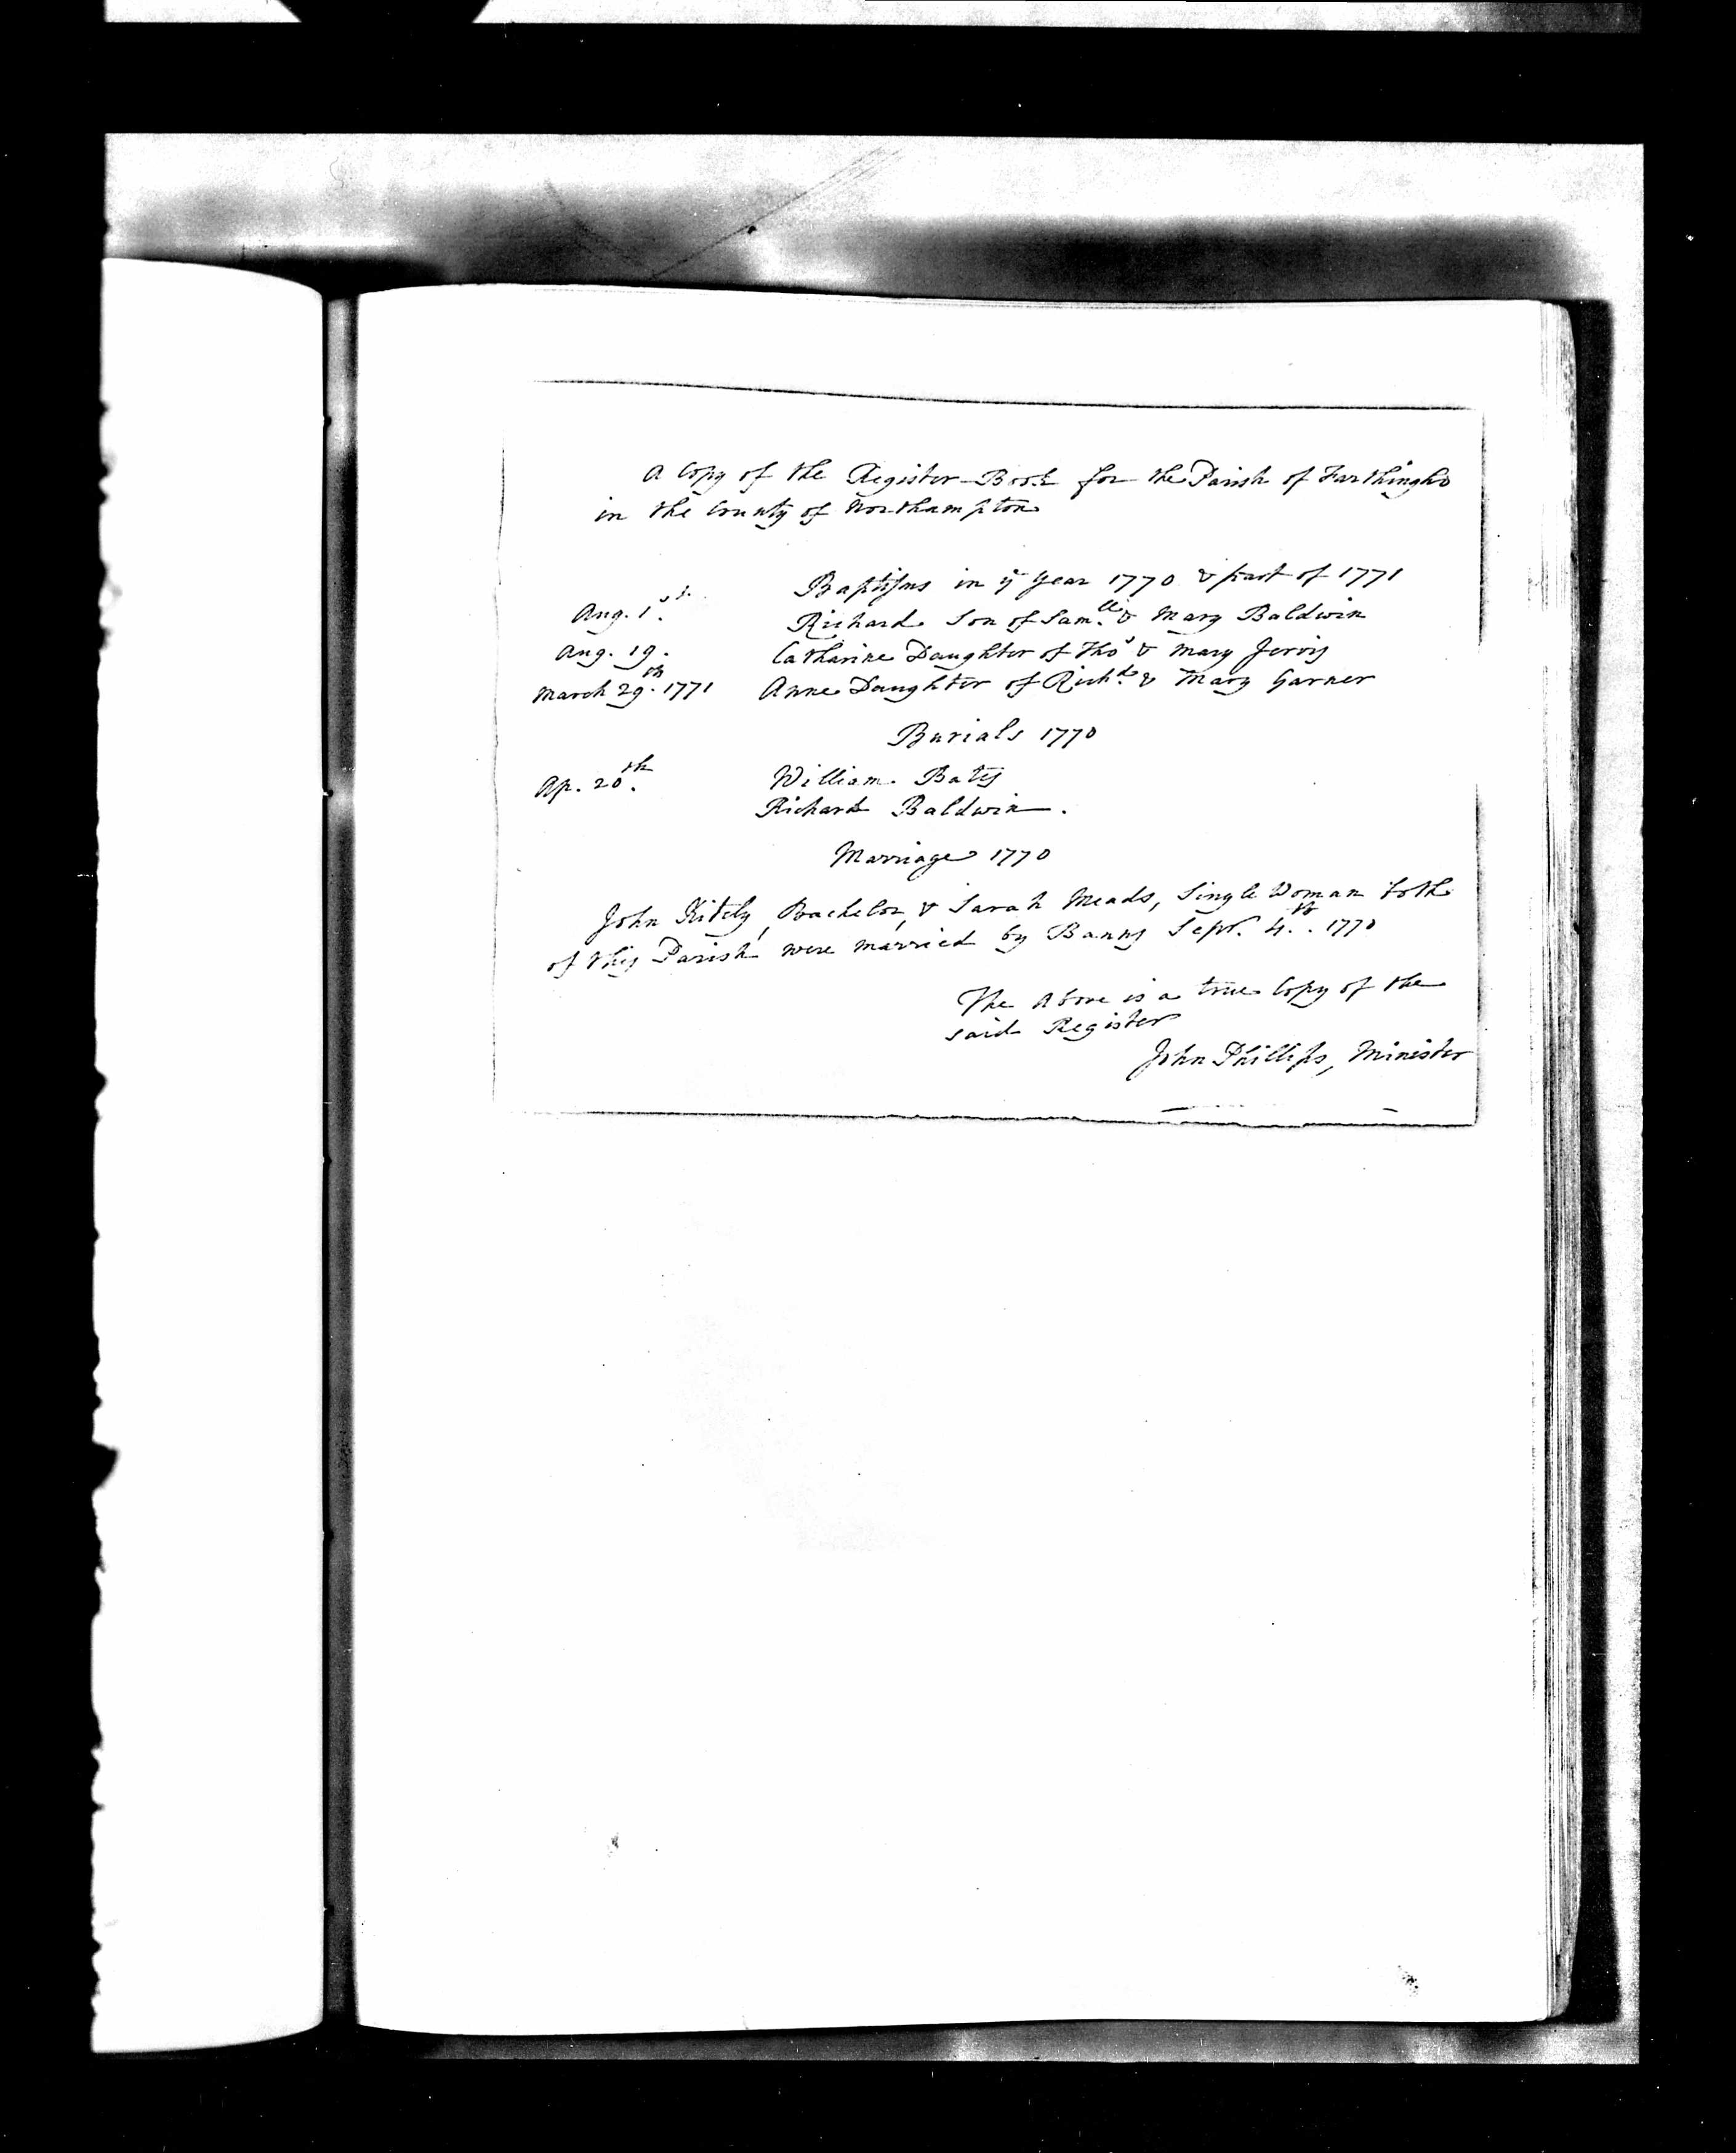 A Copy of the Register Book for the Parish of Farthingho
in the County of Northampton
Baptisms in yᵉ Year 1770 & part of 1771
Aug. 1st. Richard Son of Sam.ll & Mary Baldwin
Aug. 19. Catharine Daughter of Thos & Mary Jervis
March 29th. 1771 Anne Daughter of Richd. & Mary Garner
Burials 1770
Ap. 20th. William Bates
Richard Baldwin.
Marriage 1770
John Kitely, Bachelor, & Sarah Meads, Single Woman both
of this Parish were married by Banns Sepr. 4th. 1770
The Above is a true Copy of the
said Register
John Phillips, Minister